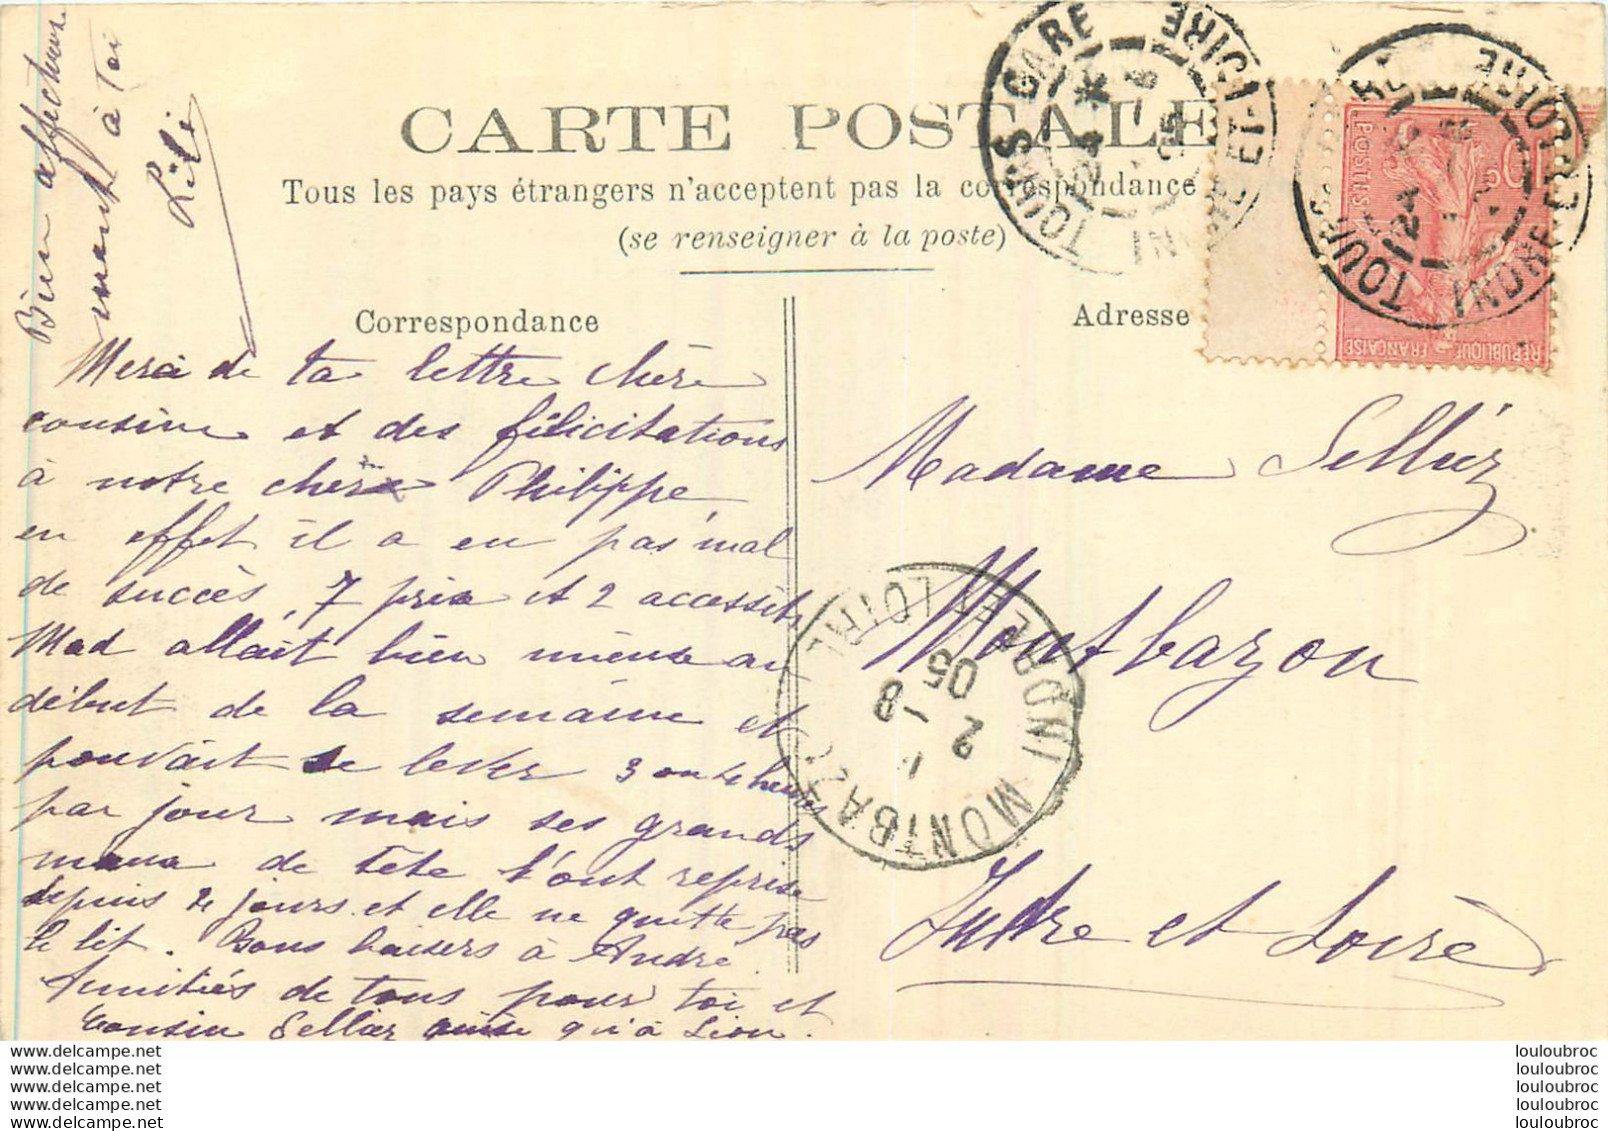 CARTE POSTALE
Tous les pays étrangers n'acceptent pas la correspondance
(se renseigner à la poste)
Correspondance
Adresse
Bien affectueuse
ment à toi
Lili
Merci de ta lettre chère
cousine et des félicitations
à notre cher Philippe,
en effet il a eu pas mal
de succès, 7 prix et 2 accessits
Mad allait bien mieux au
début de la semaine et
pouvait se lever 3 ou 4 heures
par jour mais ses grands
maux de tête l'ont reprise
depuis 2 jours et elle ne quitte pas
le lit. Bons baisers à André
Amitiés de tous pour toi et
Cousin Sellier ainsi qu'à Léon.
Madame Sellier
Montbazon
Indre et Loire
TOURS GARE
INDRE-ET-LOIRE
TOURS
INDRE-ET-LOIRE
POSTES
10c
REPUBLIQUE FRANÇAISE
MONTBAZON
INDRE-ET-LOIRE
2 - 8
05
www.delcampe.net
www.delcampe.net
www.delcampe.net
www.delcampe.net
www.delcampe.net
louloubroc
louloubroc
louloubroc
louloubroc
louloubroc